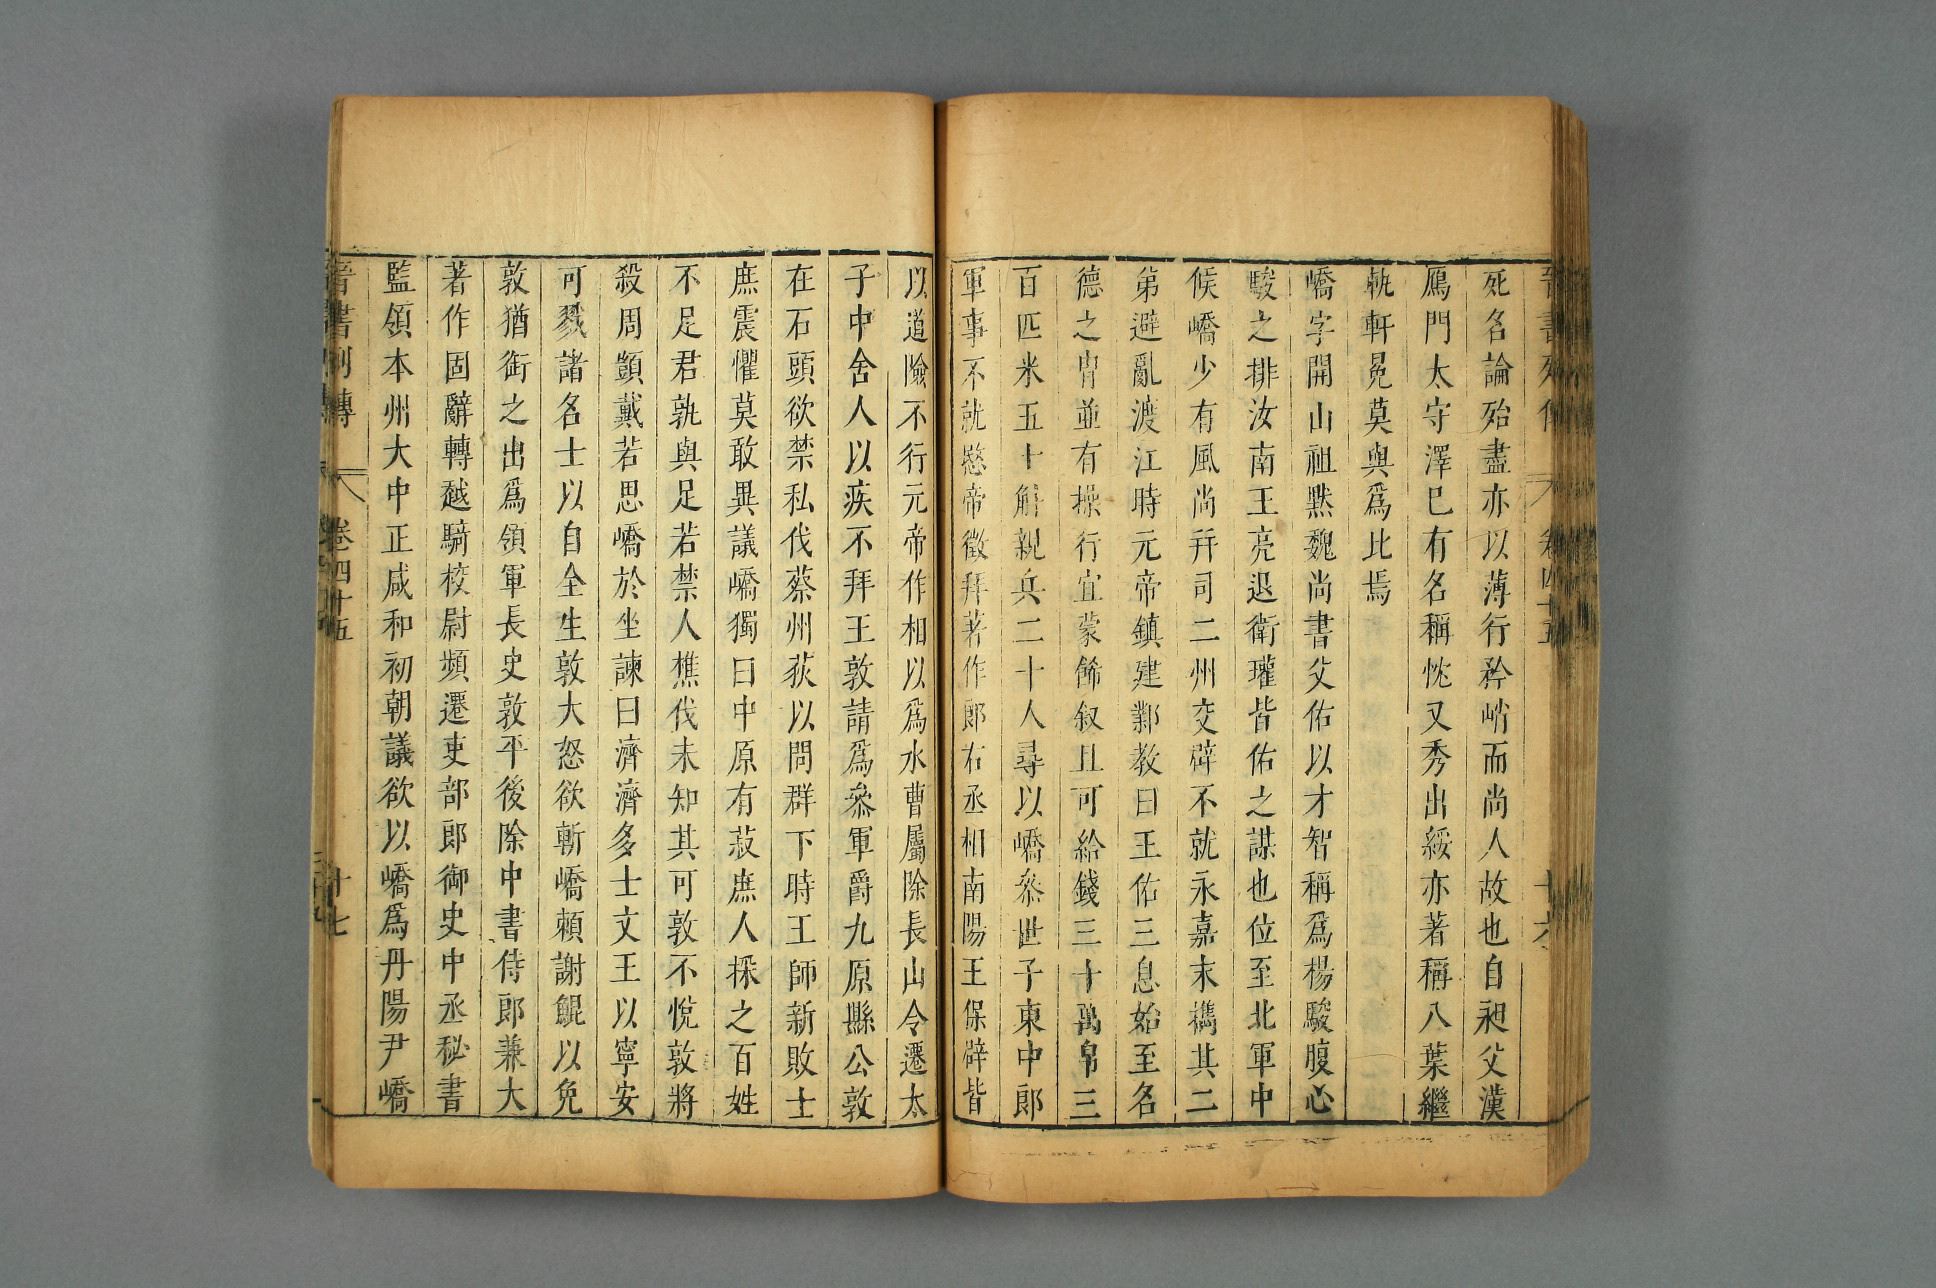 晉書列傳 卷四十五 十六
死名論殆盡亦以薄行矜峭而尚人故也自昶父漢
鴈門太守澤已有名稱忱又秀出綏亦著稱八葉繼
軌軒冕莫與爲比焉
嶠字開山祖黙魏尚書父佑以才智稱爲楊駿腹心
駿之排汝南王亮退衛瓘皆佑之謀也位至北軍中
候嶠少有風尚并司二州交辟不就永嘉末攜其二
弟避亂渡江時元帝鎮建鄴教曰王佑三息始至名
德之胄並有操行宜蒙餙叙且可給錢三十萬帛三
百匹米五十斛親兵二十人尋以嶠叅世子東中郎
軍事不就愍帝徵拜著作郎右丞相南陽王保辟皆
以道險不行元帝作相以爲水曹屬除長山令遷太
子中舍人以疾不拜王敦請爲叅軍爵九原縣公敦
在石頭欲禁私伐蔡州荻以問群下時王師新敗士
庶震懼莫敢異議嶠獨曰中原有菽庶人採之百姓
不足君孰與足若禁人樵伐未知其可敦不悅敦將
殺周顗戴若思嶠於坐諫曰濟濟多士文王以寧安
可戮諸名士以自全生敦大怒欲斬嶠賴謝鯤以免
敦猶銜之出爲領軍長史敦平後除中書侍郎兼大
著作固辭轉越騎校尉頻遷吏部郎御史中丞秘書
監領本州大中正咸和初朝議欲以嶠爲丹陽尹嶠
晉書列傳 卷四十五 十七